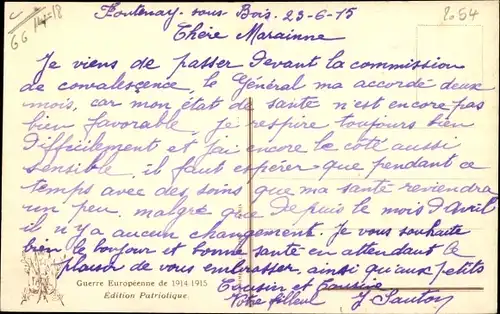 Fontenay-sous-Bois. 23-6-15
14-18
GG
2654
Chère Marainne
Je viens de passer devant la commission
de convalescence, le Général ma accordé deux
mois, car mon état de santé n'est encore pas
bien favorable. Je respire toujours bien
difficilement et j'ai encore le côté aussi
sensible, il faut espérer que pendant ce
temps avec des soins que ma santé reviendra
un peu, malgré que depuis le mois d'avril
il n'y a aucun changement. Je vous souhaite
bien le bonjour et bonne santé en attendant le
plaisir de vous embrasser, ainsi qu'aux petits
Cousin et Cousine
Votre filleul J. Sautou
Guerre Européenne de 1914-1915
Edition Patriotique